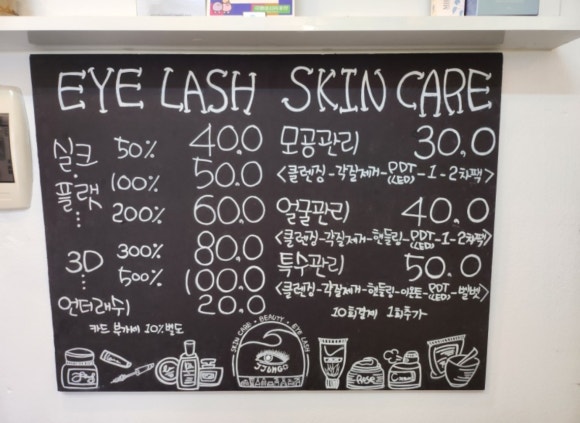 EYE LASH
실크·플랫
50% 40.0
100% 50.0
200% 60.0
3D
300% 80.0
500% 100.0
언더래쉬 20.0
카드 부가세 10%별도
SKIN CARE
모공관리 30.0
<클렌징-각질제거-PDT(LED)-1-2차팩>
얼굴관리 40.0
<클렌징-각질제거-핸들링-PDT(LED)-1-2차팩>
특수관리 50.0
<클렌징-각질제거-핸들링-이온토-PDT(LED)-벨벳>
10회결제 1회추가
SKIN CARE · BEAUTY · EYE LASH
JJUNGO
Rose